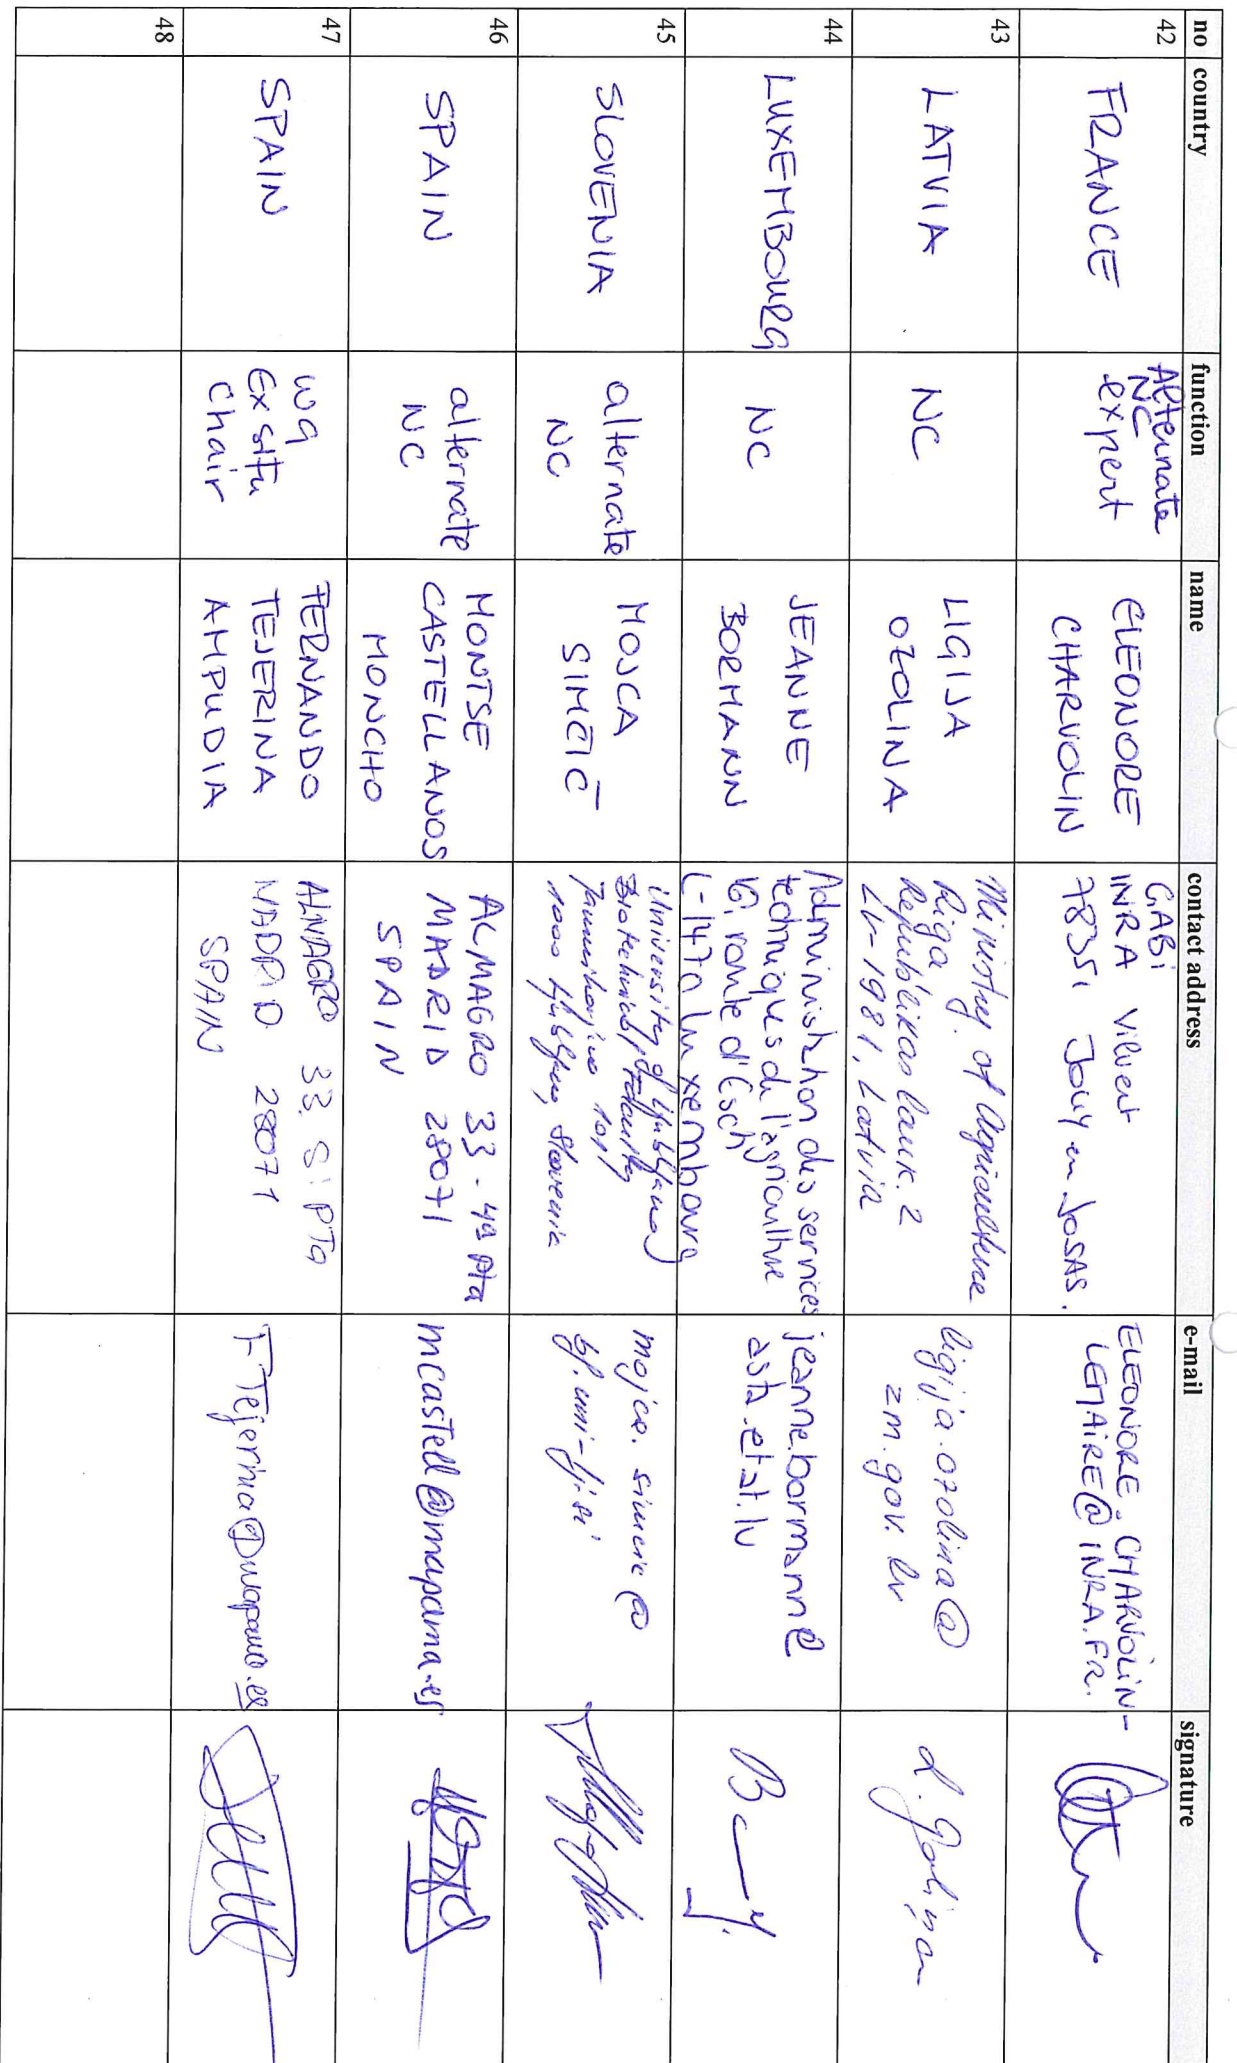 no country function name contact address e-mail signature
42 FRANCE
Alternate
NC
expert
ELEONORE
CHARVOLIN
GABI
INRA Vilvert
78351 Jouy en Josas.
ELEONORE.CHARVOLIN-
LEMAIRE@INRA.FR.
43 LATVIA
NC
LIGIJA
OZOLINA
Ministry of Agriculture
Riga
Republikas lauk. 2
LV-1981, Latvia
ligija.ozolina@
zm.gov.lv
44 LUXEMBOURG
NC
JEANNE
BORMANN
Administration des services
techniques de l'agriculture
16, route d'Esch
L-1470 Luxembourg
jeanne.bormann@
asta.etat.lu
45 SLOVENIA
alternate
NC
MOJCA
SIMČIČ
University of Ljubljana,
Biotechnical Faculty
Jamnikarjeva 101,
1000 Ljubljana, Slovenia
mojca.simcic@
bf.uni-lj.si
46 SPAIN
alternate
NC
MONTSE
CASTELLANOS
MONCHO
ALMAGRO 33-4ª Pta
MADRID 28071
SPAIN
mcastell@mapama.es
47 SPAIN
WG
Ex situ
Chair
FERNANDO
TEJERINA
AMPUDIA
ALMAGRO 33
MADRID 28071
SPAIN
FTejerina@mapama.es
48